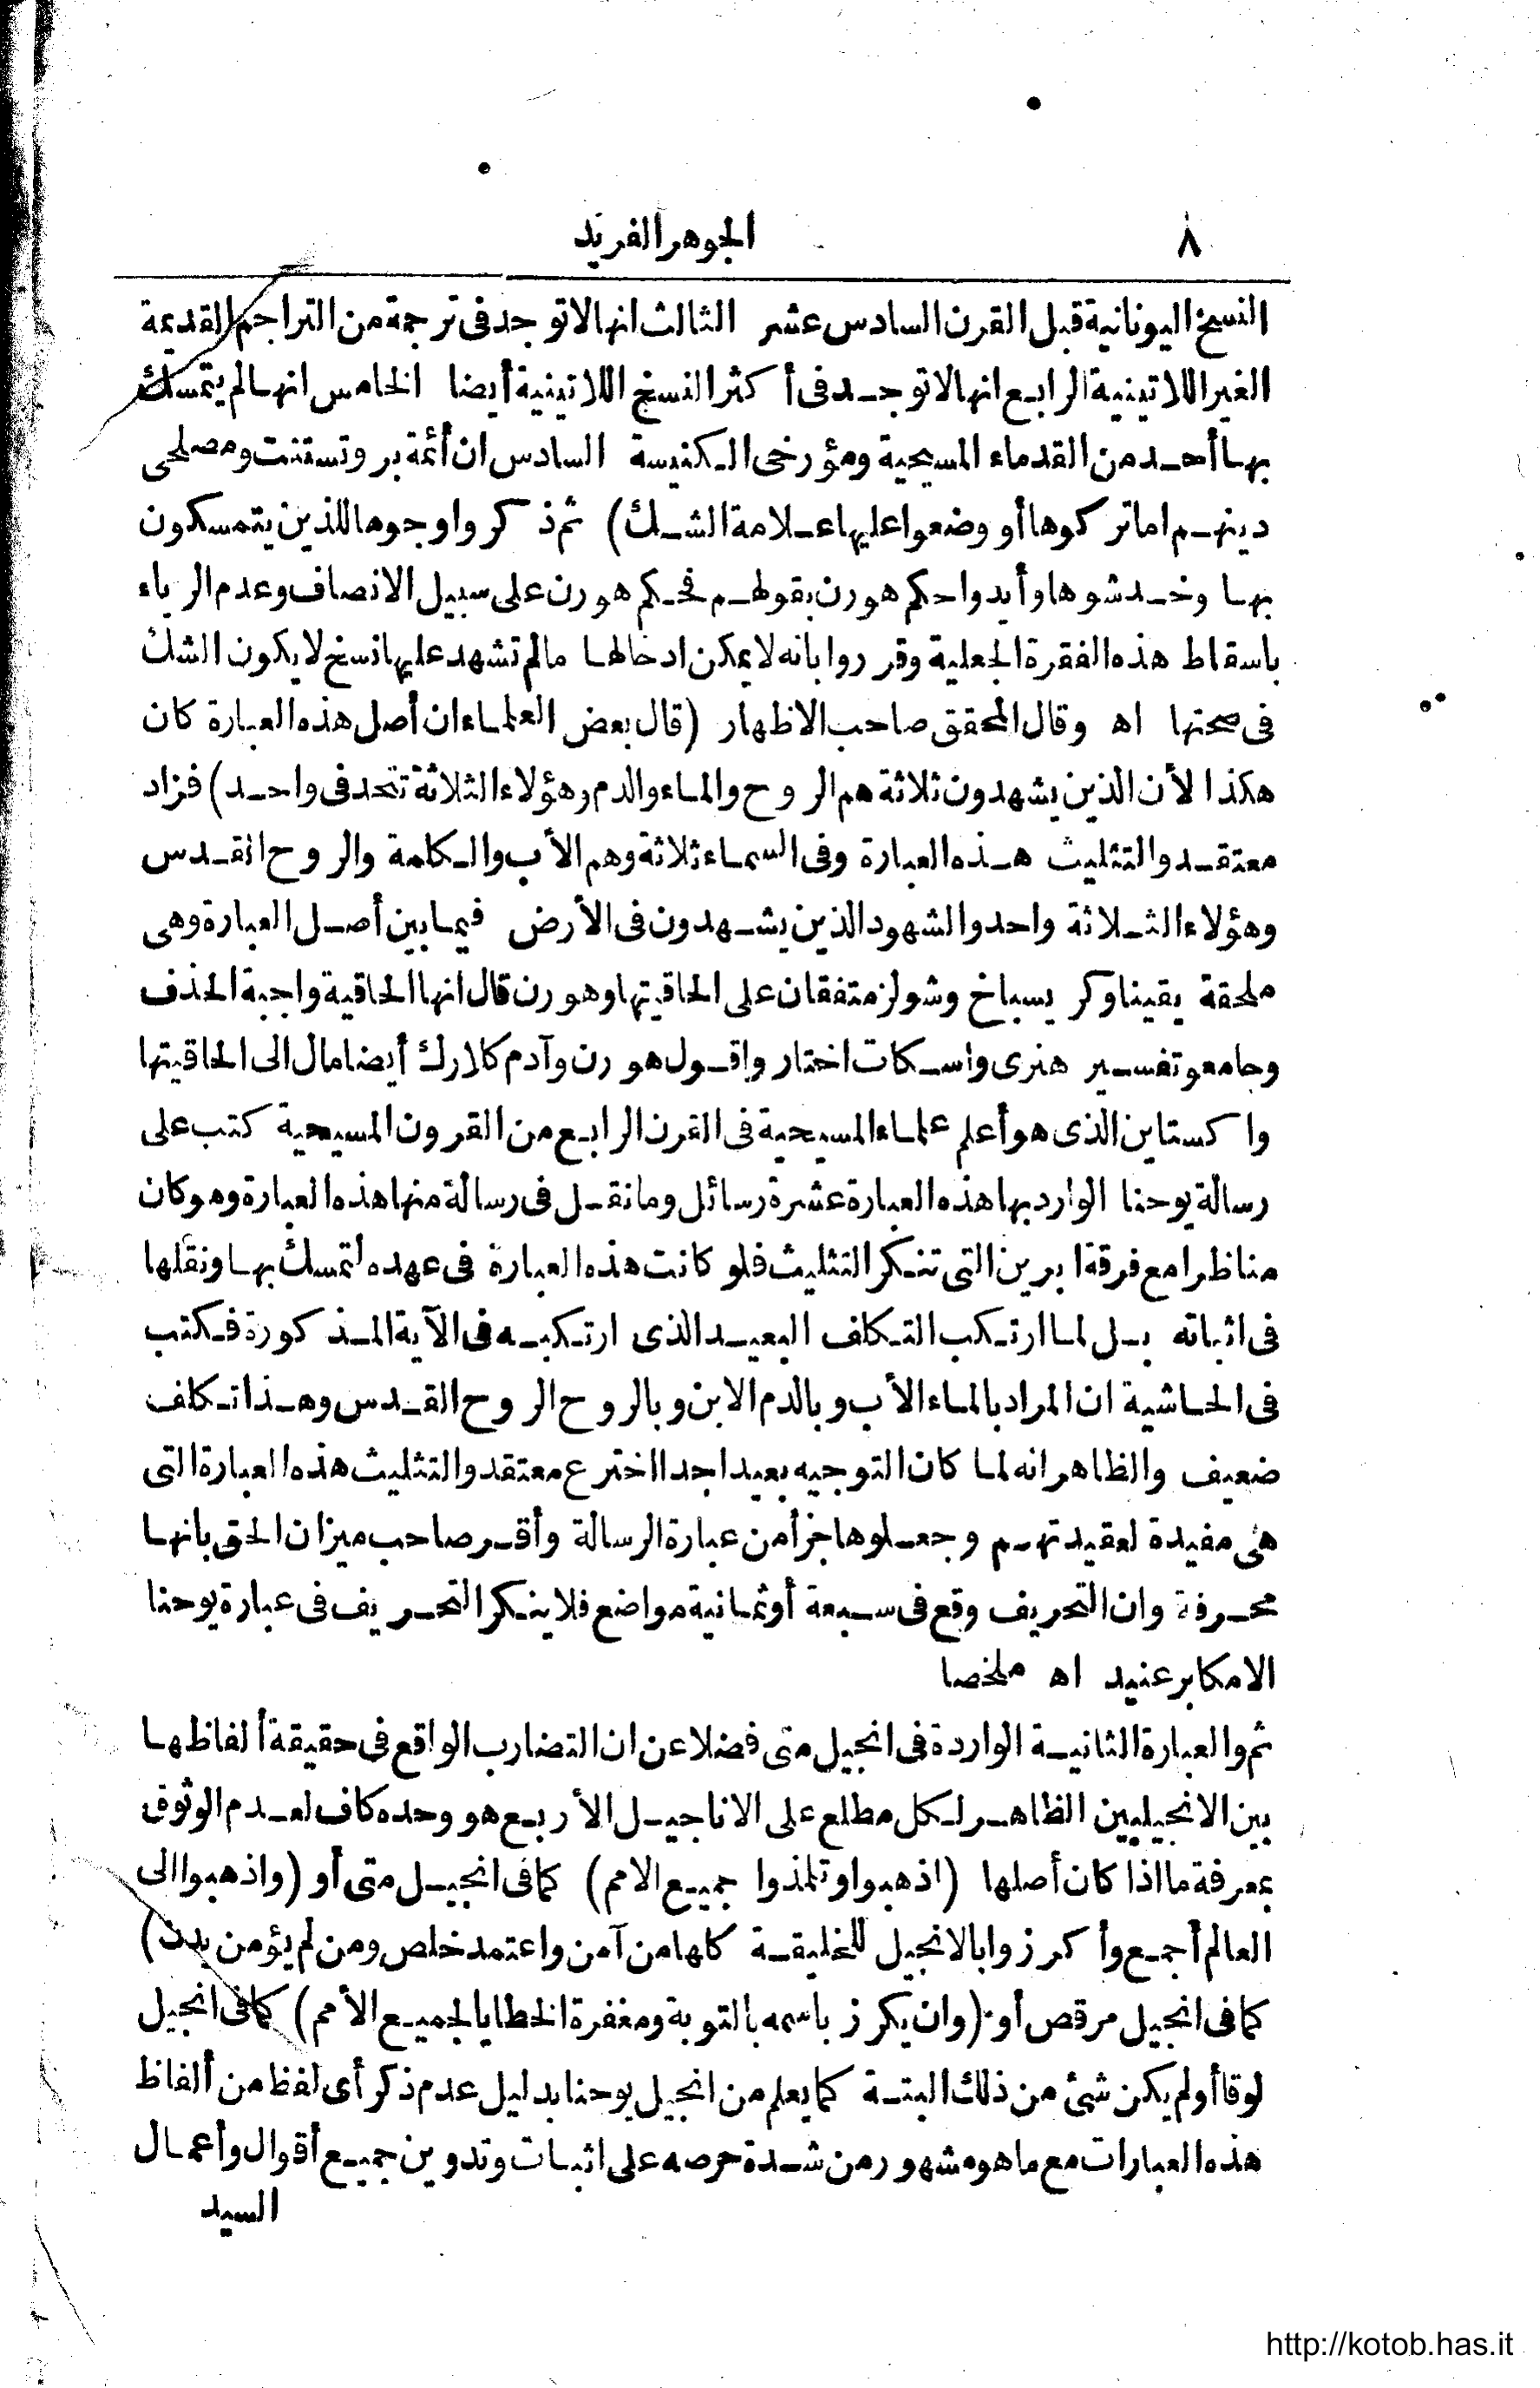 ٨ الجوهر الفريد
النسخ اليونانية قبل القرن السادس عشر الثالث انها لا توجد فى ترجمة من التراجم القديمة
الغير اللاتينية الرابع انها لا توجد فى أكثر النسخ اللاتينية أيضا الخامس انها لم يتمسك
بها أحد من القدماء المسيحية ومؤرخى الكنيسة السادس ان أئمة بروتستنت ومصلحى
دينهم اما تركوها أو وضعوا عليها علامة الشك) ثم ذكروا وجوها للذين يتمسكون
بها وخدشوها وأيدوا حكم هورن بقولهم فحكم هورن على سبيل الانصاف وعدم الرياء
باسقاط هذه الفقرة الجعلية وقرروا بانه لا يمكن ادخالها مالم تشهد عليها نسخ لا يكون الشك
فى صحتها اه وقال المحقق صاحب الاظهار (قال بعض العلماء ان أصل هذه العبارة كان
هكذا لأن الذين يشهدون ثلاثة هم الروح والماء والدم وهؤلاء الثلاثة تتحد فى واحد) فزاد
معتقدو التثليث هذه العبارة وفى السماء ثلاثة وهم الأب والكلمة والروح القدس
وهؤلاء الثلاثة واحد والشهود الذين يشهدون فى الأرض فيما بين أصل العبارة وهى
ملحقة يقينا وكريسباخ وشولز متفقان على الحاقيتها وهورن قال انها الحاقية واجبة الحذف
وجامعو تفسير هنرى واسكات اختار واقول هورن وآدم كلارك أيضا مال الى الحاقيتها
واكستاين الذى هو أعلم علماء المسيحية فى القرن الرابع من القرون المسيحية كتب على
رسالة يوحنا الوارد بها هذه العبارة عشرة رسائل وما نقل فى رسالة منها هذه العبارة وهو كان
مناظرا مع فرقة ايرين التى تنكر التثليث فلو كانت هذه العبارة فى عهده لتمسك بها ونقلها
فى اثباته بل لما ارتكب التكلف البعيد الذى ارتكبه فى الآية المذكورة فكتب
فى الحاشية ان المراد بالماء الأب وبالدم الابن وبالروح الروح القدس وهذا تكلف
ضعيف والظاهر انه لما كان التوجيه بعيدا جدا اخترع معتقدو التثليث هذه العبارة التى
هى مفيدة لعقيدتهم وجعلوها جزأ من عبارة الرسالة وأقر صاحب ميزان الحق بانها
محرفة وان التحريف وقع فى سبعة أو ثمانية مواضع فلا ينكر التحريف فى عبارة يوحنا
الا مكابر عنيد اه ملخصا
ثم والعبارة الثانية الواردة فى انجيل متى فضلا عن ان التضارب الواقع فى حقيقة ألفاظها
بين الانجيليين الظاهر لكل مطلع على الاناجيل الأربع هو وحده كاف لعدم الوثوق
بمعرفة ما اذا كان أصلها (اذهبوا وتلمذوا جميع الامم) كما فى انجيل متى أو (واذهبوا الى
العالم أجمع وأكرزوا بالانجيل للخليقة كلها من آمن واعتمد خلص ومن لم يؤمن يدن)
كما فى انجيل مرقص أو (وان يكرز باسمه بالتوبة ومغفرة الخطايا لجميع الأمم) كما فى انجيل
لوقا أو لم يكن شئ من ذلك البتة كما يعلم من انجيل يوحنا بدليل عدم ذكر أى لفظ من ألفاظ
هذه العبارات مع ما هو مشهور من شدة حرصه على اثبات وتدوين جميع أقوال وأعمال
السيد
http://kotob.has.it